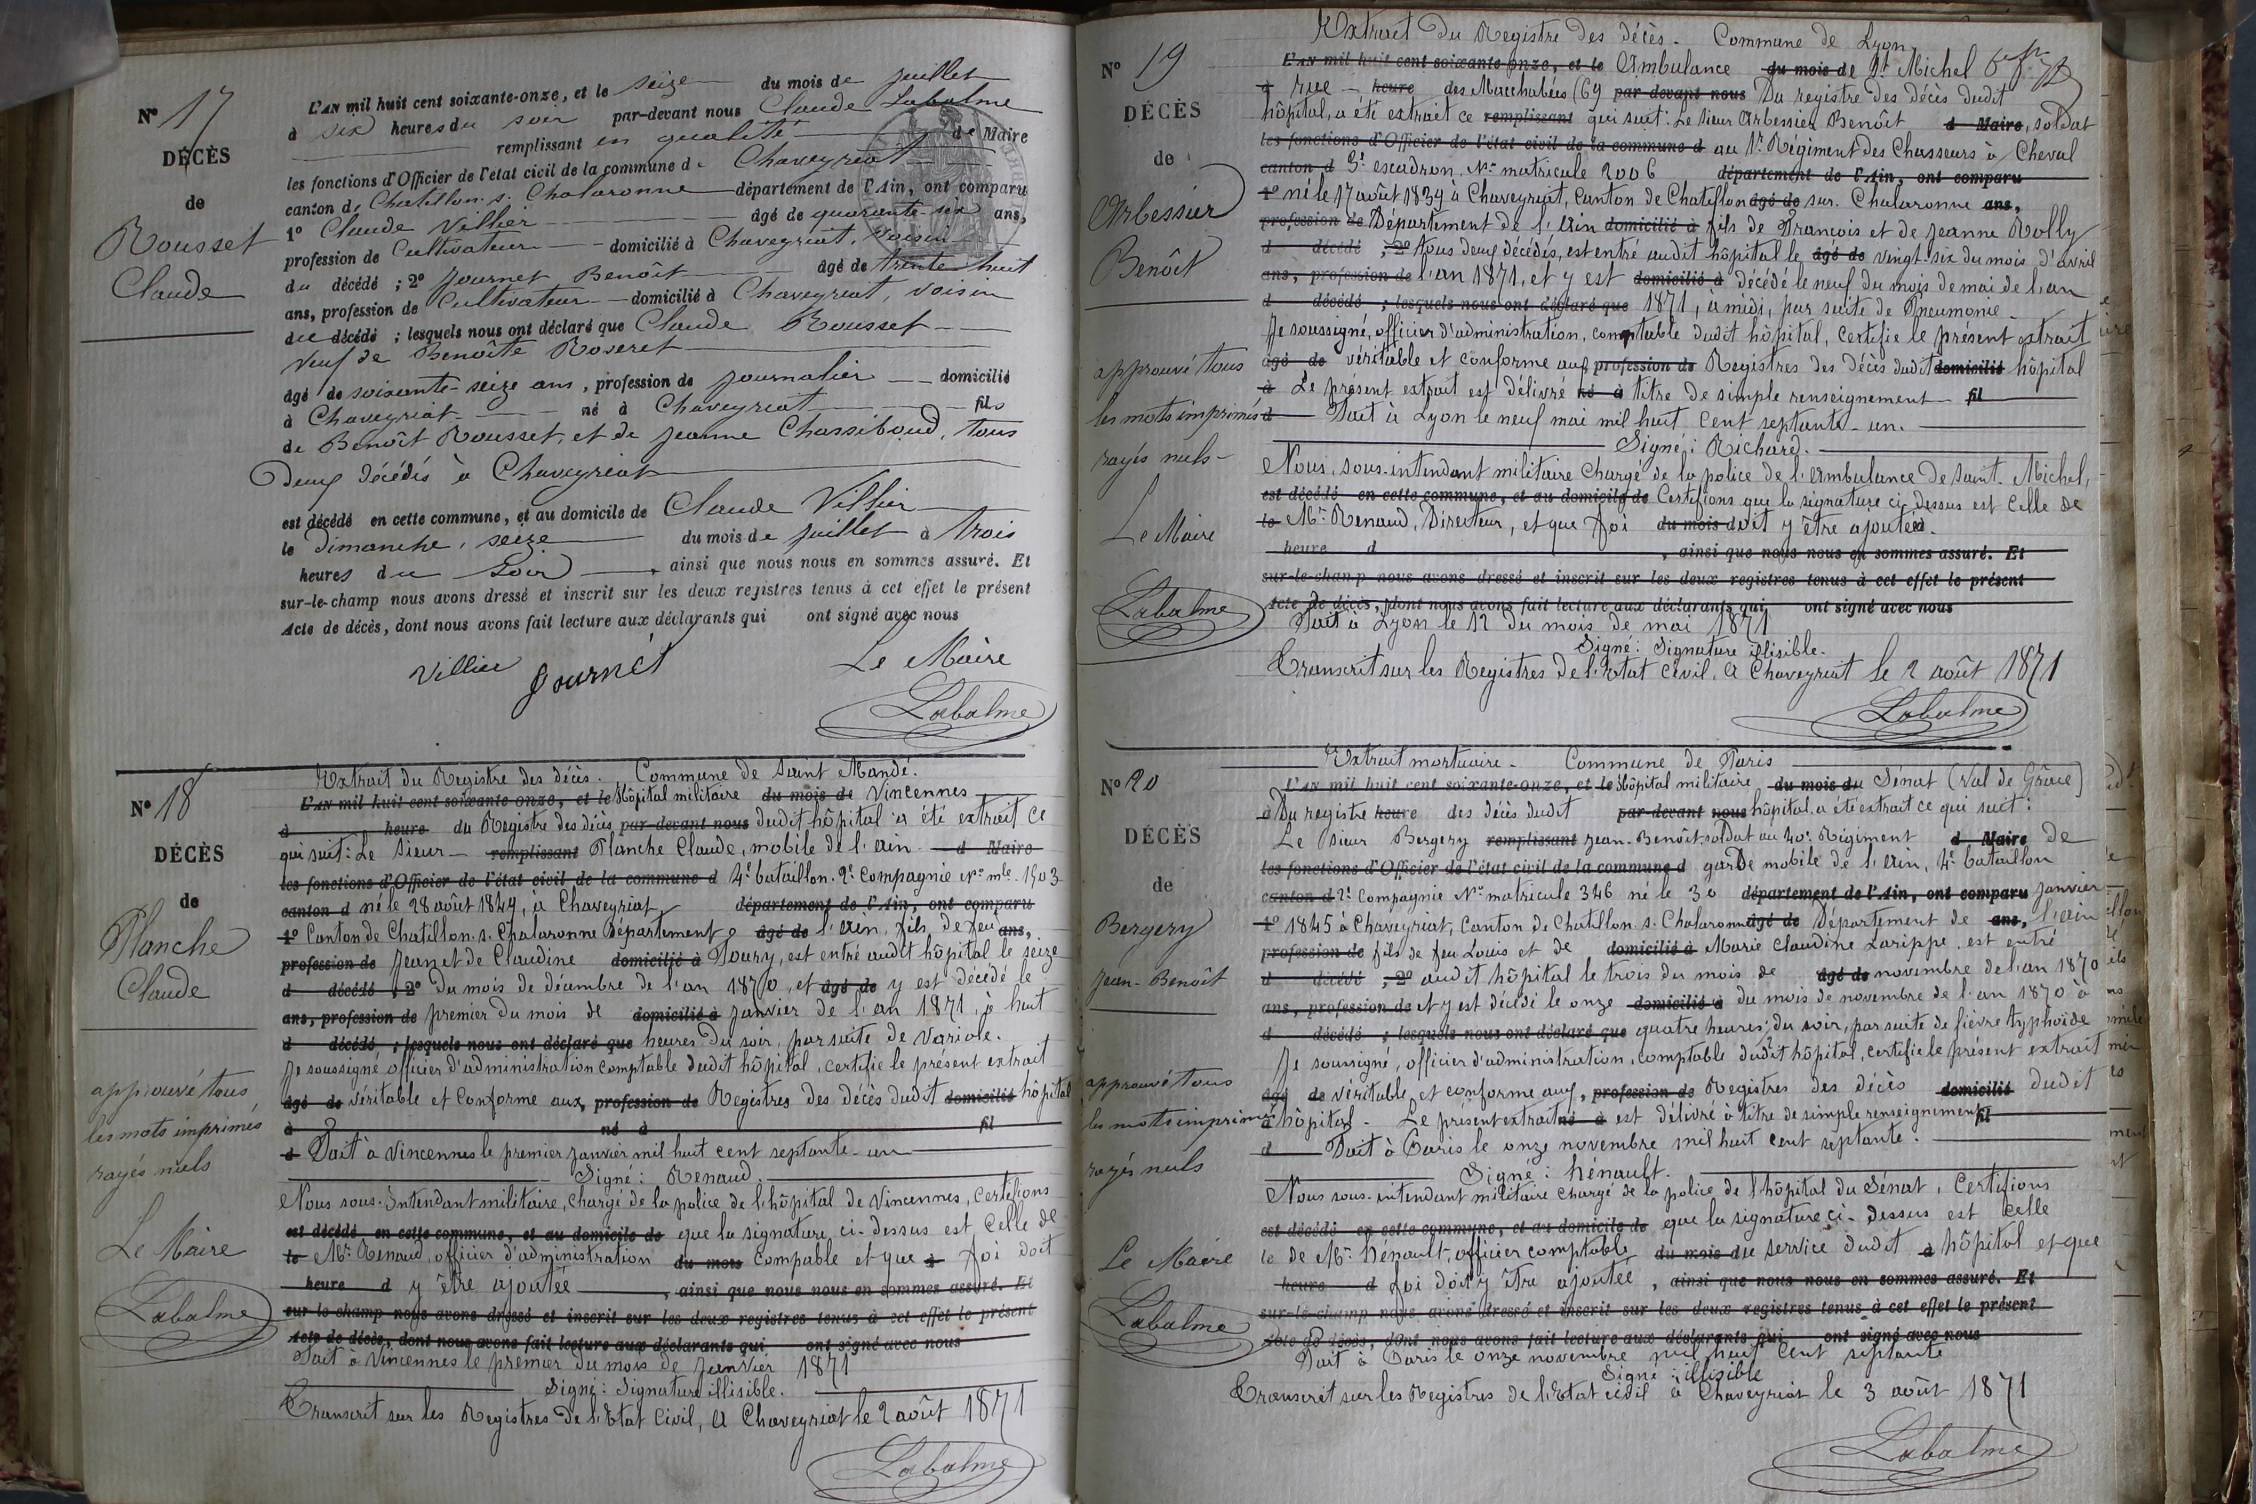 N° 17
DÉCÈS
de
Rousset
Claude
L'AN mil huit cent soixante-onze, et le seize du mois de juillet
à six heures du soir par-devant nous Claude Labalme
remplissant en qualité de Maire
les fonctions d'Officier de l'état civil de la commune de Chaveyriat
canton de Chatillon. s. Chalaronne département de l'Ain, ont comparu
1° Claude Villier âgé de quarante-six ans,
profession de Cultivateur domicilié à Chaveyriat, voisin
du décédé ; 2° Journet Benôit âgé de trente huit
ans, profession de Cultivateur domicilié à Chaveyriat, voisin
du décédé ; lesquels nous ont déclaré que Claude Rousset
veuf de Benoîte Roseret
âgé de soixante-seize ans, profession de journalier domicilié
à Chaveyriat né à Chaveyriat fils
de Benôit Rousset, et de Jeanne Chassiboud, tous
Deux décédés à Chaveyriat
est décédé en cette commune, et au domicile de Claude Villier
le dimanche, seize du mois de juillet à trois
heures du Soir, ainsi que nous nous en sommes assuré. Et
sur-le-champ nous avons dressé et inscrit sur les deux registres tenus à cet effet le présent
Acte de décès, dont nous avons fait lecture aux déclarants qui ont signé avec nous
Villier Journet Le Maire
Labalme
N° 18
DÉCÈS
de
Planche
Claude
approuvé tous
les mots imprimés
rayés nuls
Le Maire
Labalme
Extrait du Registre des décès. Commune de Saint Mandé.
L'AN mil huit cent soixante-onze, et le Hôpital militaire du mois de Vincennes
à heure du Registre des décès par-devant nous dudit hôpital a été extrait ce
qui suit: Le Sieur remplissant Planche Claude, mobile de l'ain d Maire
les fonctions d'Officier de l'état civil de la commune d 4e bataillon. 2e Compagnie No mle. 1503
canton d né le 28 août 1849, à Chaveyriat département de l'Ain, ont comparu
1° Canton de Chatillon. s. Chalaronne Département âgé de l'Ain, fils de feu ans,
profession de Jean et de Claudine domicilié à Noury, est entré audit hôpital le seize
d décédé ; 2° Du mois de décembre de l'an 1870, et âgé de y est décédé le
ans, profession de premier du mois de domicilié à janvier de l'an 1871, à huit
d décédé ; lesquels nous ont déclaré que heures du soir, par suite de Variole.
Je soussigné, officier d'administration comptable dudit hôpital, certifie le présent extrait
âgé de véritable et conforme aux, profession de Registres des décès dudit domicilié hôpital
à né à fil
d Fait à Vincennes le premier janvier mil huit cent septante-un
Signé: Renaud.
Nous sous-Intendant militaire, Chargé de la police de l'hôpital de Vincennes, Certifions
est décédé en cette commune, et au domicile de que la signature ci-dessus est Celle de
le Mr. Renaud, officier d'administration du mois Compable et que à foi doit
heure d y être ajoutée, ainsi que nous nous en sommes assuré. Et
sur-le-champ nous avons dressé et inscrit sur les deux registres tenus à cet effet le présent
Acte de décès, dont nous avons fait lecture aux déclarants qui ont signé avec nous
Fait à Vincennes le premier du mois de janvier 1871
Signé: Signature illisible.
Transcrit sur les Registres de l'Etat Civil, A Chaveyriat le 2 août 1871
Labalme
N° 19
DÉCÈS
de
Arbessier
Benôit
approuvé tous
les mots imprimés
rayés nuls
Le Maire
Labalme
Extrait du Registre des décès. Commune de Lyon
L'AN mil huit cent soixante-onze, et le Ambulance du mois de St Michel
à rue heure des Macchabées (69 par-devant nous Du registre des décès dudit
hôpital, a été extrait ce remplissant qui suit: Le Sieur Arbessier Benôit d Maire, soldat
les fonctions d'Officier de l'état civil de la commune d au 1r. Regiment des Chasseurs à Cheval
canton d 3e escadron, No matricule 2006 département de l'Ain, ont comparu
1° né le 17 août 1839 à Chaveyriat, Canton de Chatillon âgé de sur Chalaronne ans,
profession de Département de l'Ain domicilié à fils de Francois et de Jeanne Rolly
d décédé ; 2° tous deux décédés, est entré audit hôpital le âgé de vingt-six du mois d'avril
ans, profession de l'an 1871, et y est domicilié à décédé le neuf du mois de mai de l'an
d décédé ; lesquels nous ont déclaré que 1871, à midi, par suite de Pneumonie
Je soussigné, officier d'administration, comptable dudit hôpital, certifie le présent extrait
âgé de véritable et conforme aux profession de Registres des décès dudit domicilié hôpital
à Le présent extrait est délivré né à titre de simple renseignement fil
d Fait à Lyon le neuf mai mil huit cent septante-un.
Signé: Richard.
Nous, sous-intendant militaire Chargé de la police de l'Ambulance de Saint-Michel,
est décédé en cette commune, et au domicile de Certifions que la signature ci-dessus est Celle de
le Mr. Renaud, Directeur, et que foi du mois doit y être ajoutée à
heure d, ainsi que nous nous en sommes assuré. Et
sur-le-champ nous avons dressé et inscrit sur les deux registres tenus à cet effet le présent
Acte de décès, dont nous avons fait lecture aux déclarants qui ont signé avec nous
Fait à Lyon le 12 du mois de mai 1871
Signé: Signature illisible.
Transcrit sur les Registres de l'Etat Civil, A Chaveyriat le 2 août 1871
Labalme
N° 20
DÉCÈS
de
Bergery
Jean-Benôit
approuvé tous
les mots imprimés
rayés nuls
Le Maire
Labalme
Extrait mortuaire - Commune de Paris
L'AN mil huit cent soixante-onze, et le Hôpital militaire du mois du Sénat (Val de Grâce)
à Du registre heure des décès dudit par-devant nous hôpital a été extrait ce qui suit:
Le Sieur Bergery remplissant Jean-Benôit, soldat au 40e. Régiment d Maire de
les fonctions d'Officier de l'état civil de la commune d garde mobile de l'Ain, 4e bataillon
canton d 2e Compagnie No matricule 346 né le 30 département de l'Ain, ont comparu janvier
1° 1845 à Chaveyriat, Canton de Chatillon. s. Chalaronne âgé de Département de ans, l'ain
profession de fils de feu Louis et de domicilié à Marie Claudine Larippe, est entré
d décédé ; 2° audit hôpital le trois du mois de âgé de novembre de l'an 1870
ans, profession de et y est décédé le onze domicilié à du mois de novembre de l'an 1870 à
d décédé ; lesquels nous ont déclaré que quatre heures, du soir, par suite de fièvre typhoïde
Je soussigné, officier d'administration, comptable dudit hôpital, certifie le présent extrait
âgé de véritable et conforme aux, profession de Registres des décès domicilié dudit
à hôpital - Le présent extrait né à est délivré à titre de simple renseignement fil
d Fait à Paris le onze novembre mil huit cent septante.
Signé: hénault.
Nous sous-intendant militaire chargé de la police de l'hôpital du Sénat, Certifions
est décédé en cette commune, et au domicile de que la signature ci-dessus est celle
le de Mr. hénault, officier comptable du mois du service dudit à hôpital et que
heure d foi doit y être ajoutée, ainsi que nous nous en sommes assuré. Et
sur-le-champ nous avons dressé et inscrit sur les deux registres tenus à cet effet le présent
Acte de décès, dont nous avons fait lecture aux déclarants qui ont signé avec nous
Fait à Paris le onze novembre mil huit cent septante
Signé: illisible
Transcrit sur les Registres de l'Etat civil à Chaveyriat le 3 août 1871
Labalme